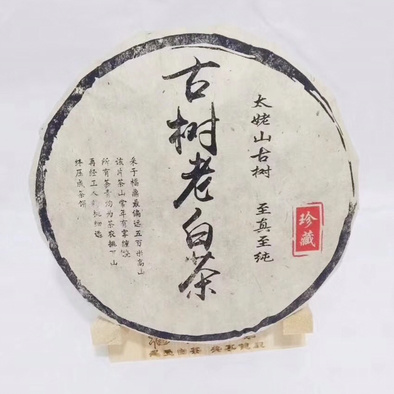 太姥山古树 至真至纯
珍藏
古树老白茶
采于福鼎最偏远五百米高山
该片茶山常年有云雾
所有茶青均为茶农挑下山
再经工人
终压成茶饼